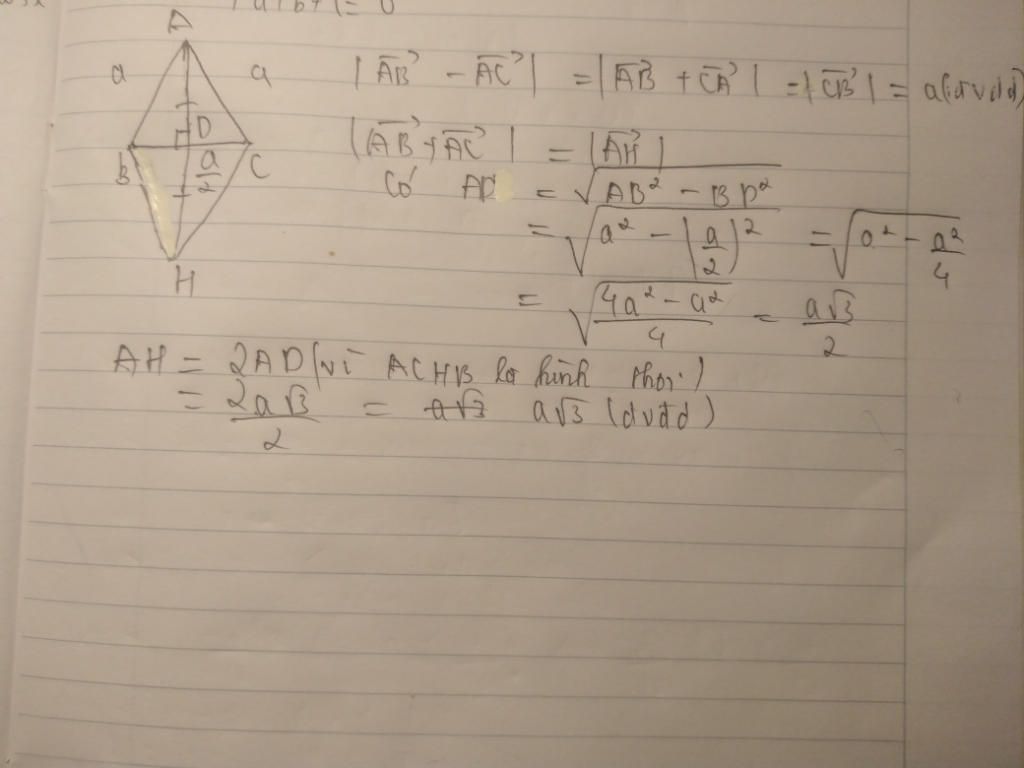 = 0
A
a a |AB⃗ - AC⃗| = |AB⃗ + CA⃗| = |CB⃗| = a (đvđd)
D
B a/2 C |AB⃗ + AC⃗| = |AH⃗|
Có AD = √(AB² - BD²)
= √(a² - (a/2)²) = √(a² - a²/4)
H
= √((4a² - a²)/4) = a√3/2
AH = 2AD (vì ACHB là hình thoi)
= 2a√3/2 = a√3 (đvđd)